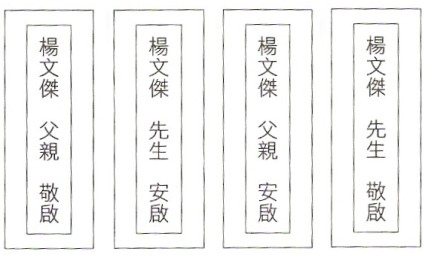 楊文傑 父親 敬啟
楊文傑 先生 安啟
楊文傑 父親 安啟
楊文傑 先生 敬啟